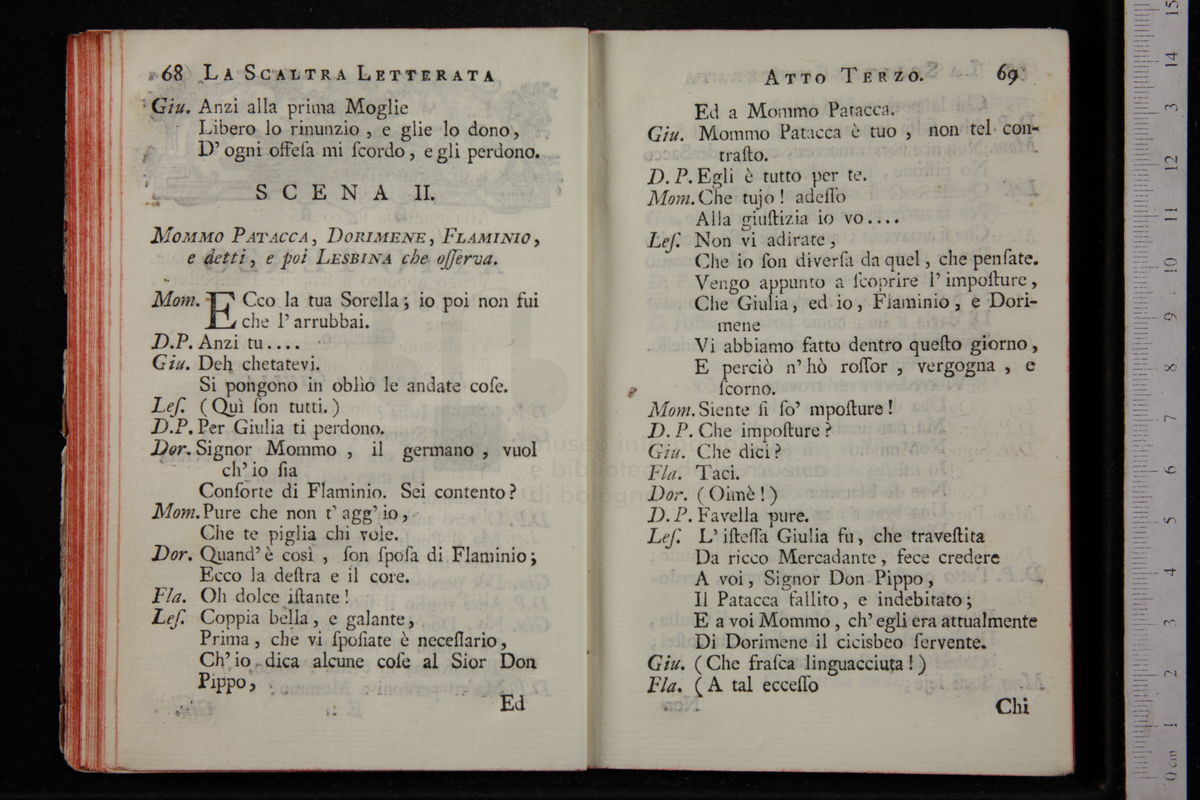 68 LA SCALTRA LETTERATA
Giu. Anzi alla prima Moglie
Libero lo rinunzio , e glie lo dono,
D' ogni offeſa mi ſcordo, e gli perdono.
SCENA II.
MOMMO PATACCA, DORIMENE, FLAMINIO,
e detti, e poi LESBINA che oſſerva.
Mom. ECco la tua Sorella; io poi non fui
che l' arrubbai.
D.P. Anzi tu....
Giu. Deh chetatevi.
Si pongono in oblìo le andate coſe.
Leſ. (Quì ſon tutti.)
D.P. Per Giulia ti perdono.
Dor. Signor Mommo , il germano , vuol
ch' io ſia
Conſorte di Flaminio. Sei contento?
Mom. Pure che non t' agg' io,
Che te piglia chi vole.
Dor. Quand' è così , ſon ſpoſa di Flaminio;
Ecco la deſtra e il core.
Fla. Oh dolce iſtante!
Leſ. Coppia bella, e galante,
Prima, che vi ſpoſiate è neceſſario,
Ch' io dica alcune coſe al Sior Don
Pippo,
Ed
ATTO TERZO. 69
Ed a Mommo Patacca.
Giu. Mommo Patacca è tuo , non tel con-
traſto.
D. P. Egli è tutto per te.
Mom. Che tujo! adeſſo
Alla giuſtizia io vo....
Leſ. Non vi adirate,
Che io ſon diverſa da quel, che penſate.
Vengo appunto a ſcoprire l' impoſture,
Che Giulia, ed io, Flaminio, e Dori-
mene
Vi abbiamo fatto dentro queſto giorno,
E perciò n' hò roſſor , vergogna , e
ſcorno.
Mom. Siente ſi ſo' mpoſture!
D. P. Che impoſture?
Giu. Che dici?
Fla. Taci.
Dor. (Oimè!)
D. P. Favella pure.
Leſ. L' iſteſſa Giulia fu, che traveſtita
Da ricco Mercadante, fece credere
A voi, Signor Don Pippo,
Il Patacca fallito, e indebitato;
E a voi Mommo, ch' egli era attualmente
Di Dorimene il cicisbeo ſervente.
Giu. (Che fraſca linguacciuta!)
Fla. (A tal ecceſſo
Chi